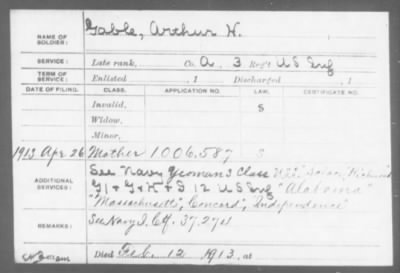 NAME OF SOLDIER: Gable, Arthur W.
SERVICE: Late rank, Co. A, 3 Reg't U S Inf
TERM OF SERVICE: Enlisted , 1 Discharged , 1
DATE OF FILING. CLASS. APPLICATION NO. LAW. CERTIFICATE NO.
Invalid, S
Widow,
Minor,
1913 Apr 26 Mother 1006.587 S
ADDITIONAL SERVICES: See Navy Yeoman 3 Class U.S.S.
G, I + G + K + I 12 U S Inf "Alabama"
"Massachusetts", "Concord", "Independence"
REMARKS: See Navy I. Ctf. 37.274
Died Feb. 12 1913, at